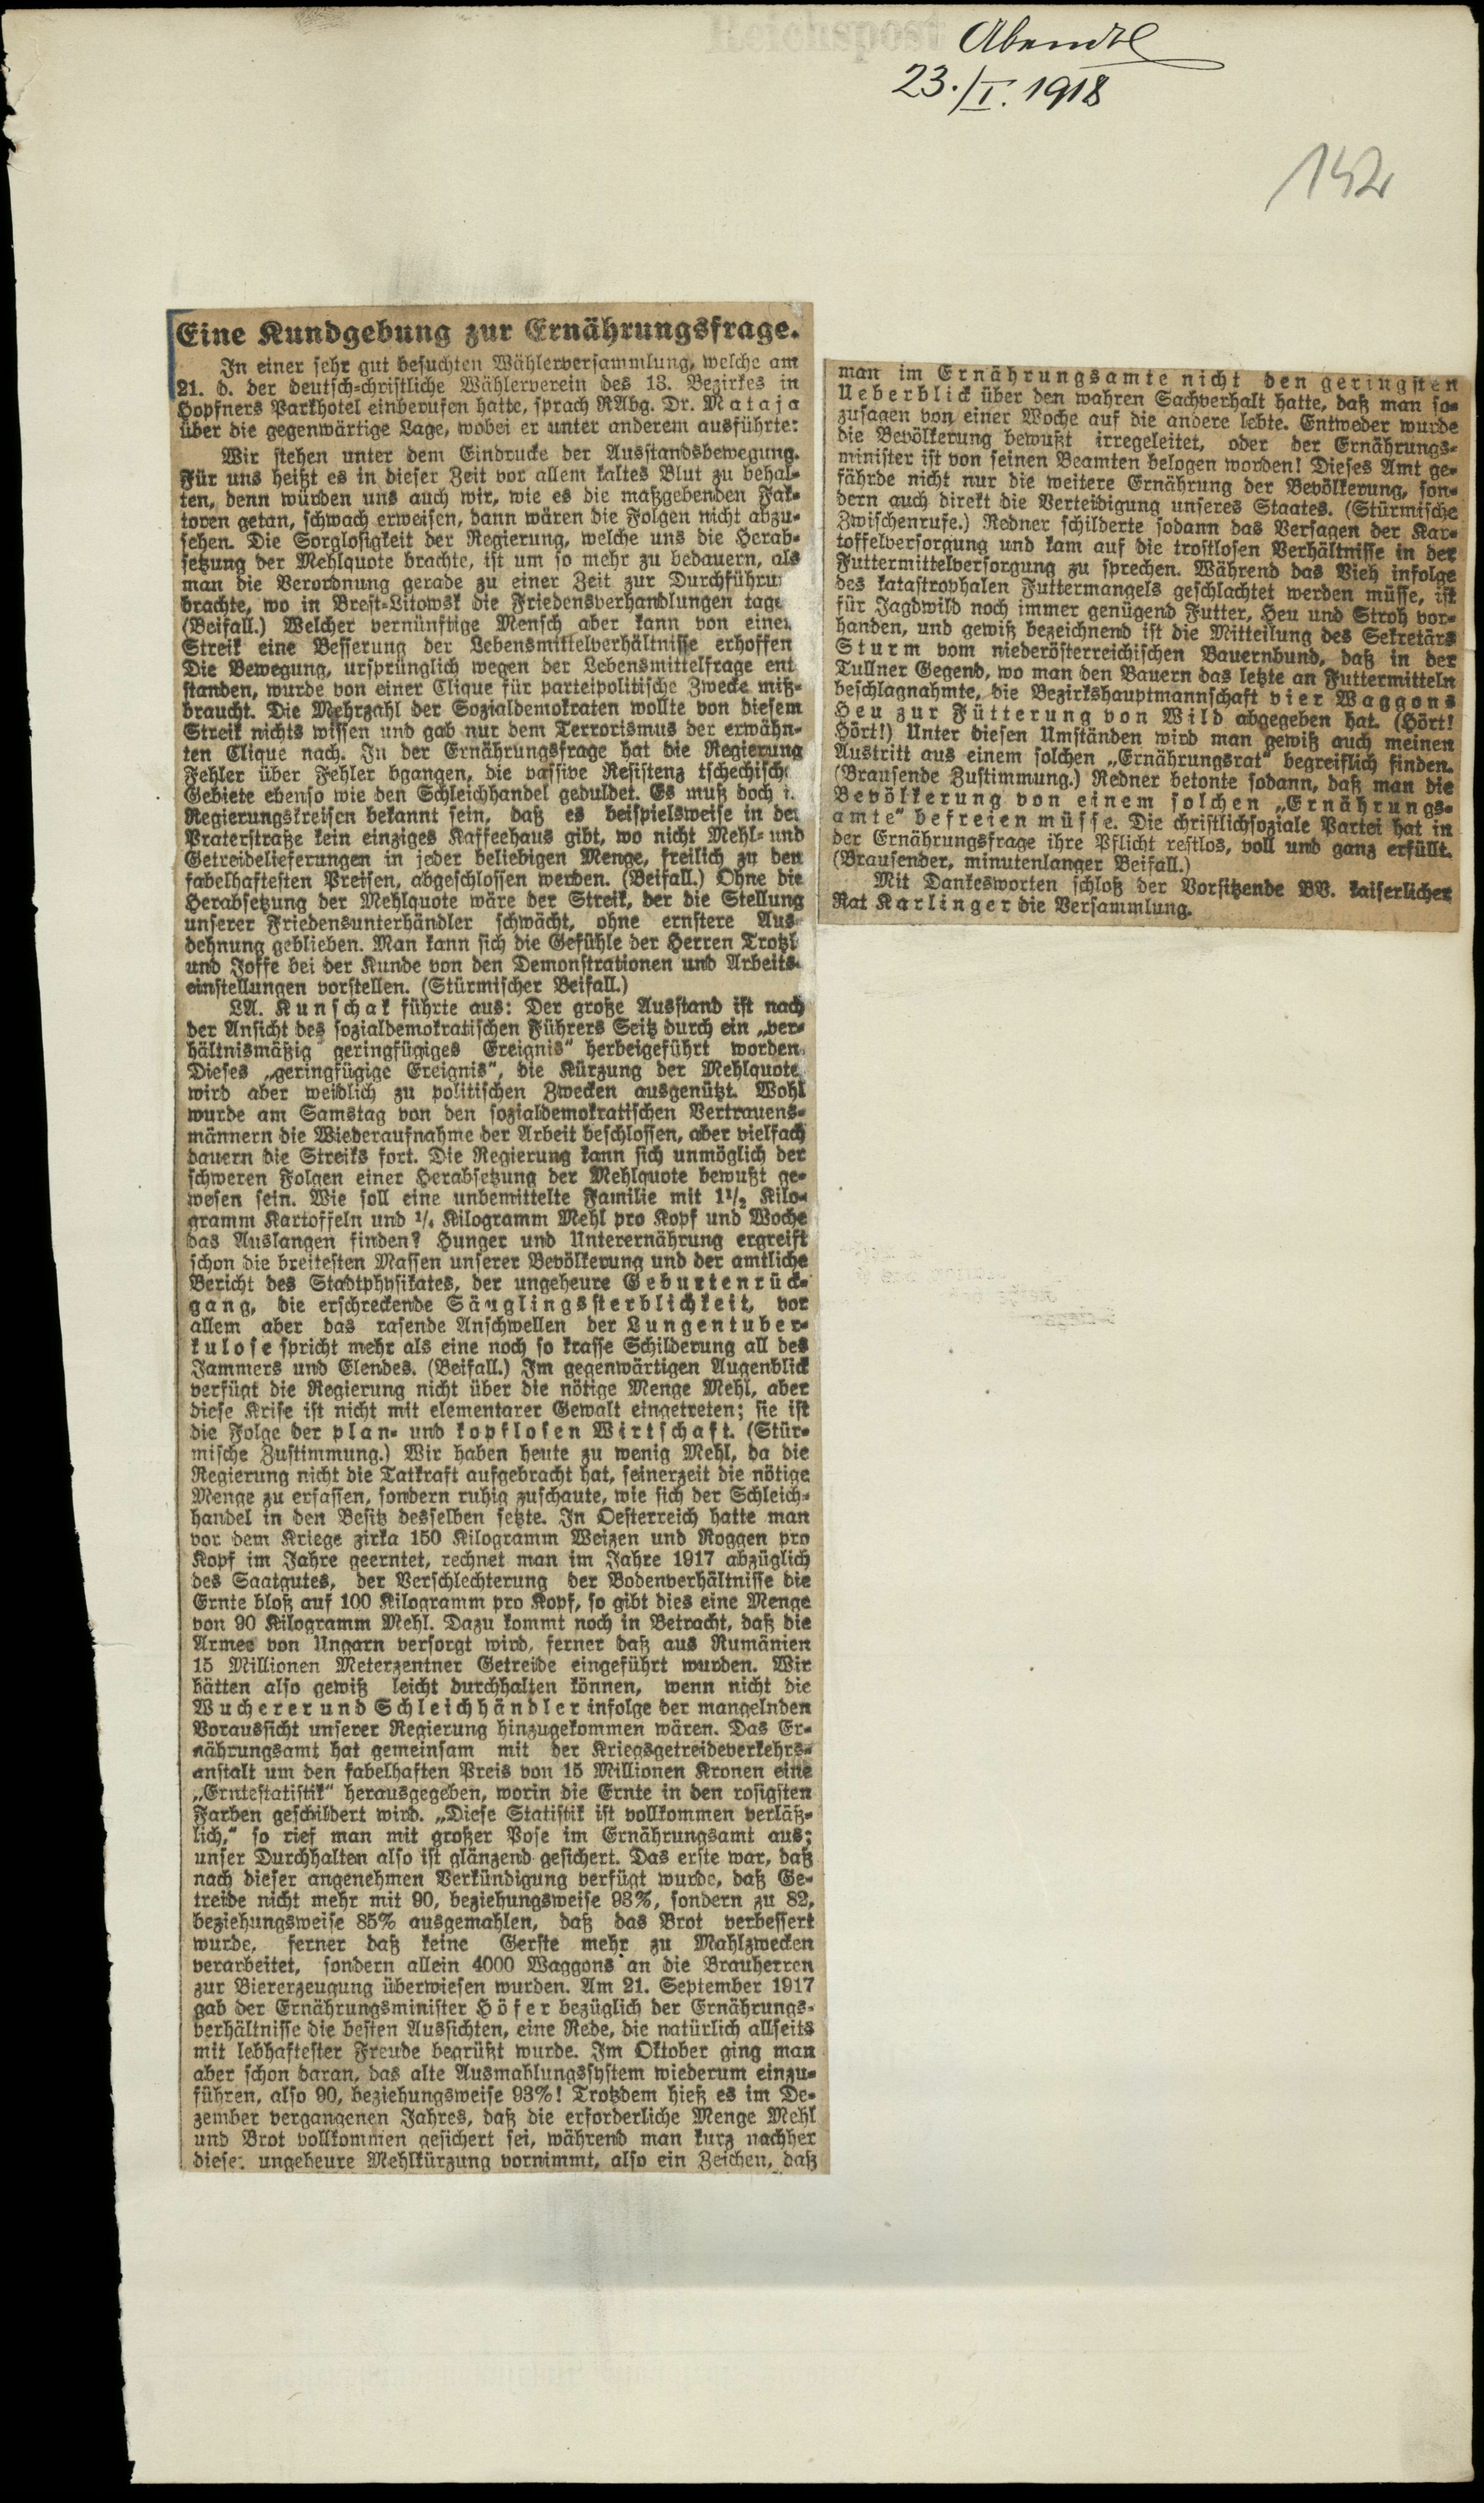 Reichspost
Abendbl
23./I. 1918
142
Eine Kundgebung zur Ernährungsfrage.
In einer sehr gut besuchten Wählerversammlung, welche am
21. d. der deutsch-christliche Wählerverein des 13. Bezirkes in
Hopfners Parkhotel einberufen hatte, sprach RAbg. Dr. Mataja
über die gegenwärtige Lage, wobei er unter anderem ausführte:
Wir stehen unter dem Eindrucke der Ausstandsbewegung.
Für uns heißt es in dieser Zeit vor allem kaltes Blut zu behal-
ten, denn würden uns auch wir, wie es die maßgebenden Fak-
toren getan, schwach erweisen, dann wären die Folgen nicht abzu-
sehen. Die Sorglosigkeit der Regierung, welche uns die Herab-
setzung der Mehlquote brachte, ist um so mehr zu bedauern, als
man die Verordnung gerade zu einer Zeit zur Durchführu
brachte, wo in Brest-Litowsk die Friedensverhandlungen tage
(Beifall.) Welcher vernünftige Mensch aber kann von einer
Streik eine Besserung der Lebensmittelverhältnisse erhoffen
Die Bewegung, ursprünglich wegen der Lebensmittelfrage ent
standen, wurde von einer Clique für parteipolitische Zwecke miß-
braucht. Die Mehrzahl der Sozialdemokraten wollte von diesem
Streik nichts wissen und gab nur dem Terrorismus der erwähn-
ten Clique nach. In der Ernährungsfrage hat die Regierung
Fehler über Fehler bgangen, die passive Resistenz tschechische
Gebiete ebenso wie den Schleichhandel geduldet. Es muß doch i.
Regierungskreisen bekannt sein, daß es beispielsweise in der
Praterstraße kein einziges Kaffeehaus gibt, wo nicht Mehl- und
Getreidelieferungen in jeder beliebigen Menge, freilich zu den
fabelhaftesten Preisen, abgeschlossen werden. (Beifall.) Ohne die
Herabsetzung der Mehlquote wäre der Streik, der die Stellung
unserer Friedensunterhändler schwächt, ohne ernstere Aus-
dehnung geblieben. Man kann sich die Gefühle der Herren Trotzki
und Joffe bei der Kunde von den Demonstrationen und Arbeits-
einstellungen vorstellen. (Stürmischer Beifall.)
LA. Kunschak führte aus: Der große Ausstand ist nach
der Ansicht des sozialdemokratischen Führers Seitz durch ein „ver-
hältnismäßig geringfügiges Ereignis“ herbeigeführt worden.
Dieses „geringfügige Ereignis“, die Kürzung der Mehlquote
wird aber weidlich zu politischen Zwecken ausgenützt. Wohl
wurde am Samstag von den sozialdemokratischen Vertrauens-
männern die Wiederaufnahme der Arbeit beschlossen, aber vielfach
dauern die Streiks fort. Die Regierung kann sich unmöglich der
schweren Folgen einer Herabsetzung der Mehlquote bewußt ge-
wesen sein. Wie soll eine unbemittelte Familie mit 1½ Kilo-
gramm Kartoffeln und ¼ Kilogramm Mehl pro Kopf und Woche
das Auslangen finden? Hunger und Unterernährung ergreift
schon die breitesten Massen unserer Bevölkerung und der amtliche
Bericht des Stadtphysikates, der ungeheure Geburtenrück-
gang, die erschreckende Säuglingssterblichkeit, vor
allem aber das rasende Anschwellen der Lungentuber-
kulose spricht mehr als eine noch so krasse Schilderung all des
Jammers und Elendes. (Beifall.) Im gegenwärtigen Augenblick
verfügt die Regierung nicht über die nötige Menge Mehl, aber
diese Krise ist nicht mit elementarer Gewalt eingetreten; sie ist
die Folge der plan- und kopflosen Wirtschaft. (Stür-
mische Zustimmung.) Wir haben heute zu wenig Mehl, da die
Regierung nicht die Tatkraft aufgebracht hat, seinerzeit die nötige
Menge zu erfassen, sondern ruhig zuschaute, wie sich der Schleich-
handel in den Besitz desselben setzte. In Oesterreich hatte man
vor dem Kriege zirka 150 Kilogramm Weizen und Roggen pro
Kopf im Jahre geerntet, rechnet man im Jahre 1917 abzüglich
des Saatgutes, der Verschlechterung der Bodenverhältnisse die
Ernte bloß auf 100 Kilogramm pro Kopf, so gibt dies eine Menge
von 90 Kilogramm Mehl. Dazu kommt noch in Betracht, daß die
Armee von Ungarn versorgt wird, ferner daß aus Rumänien
15 Millionen Meterzentner Getreide eingeführt wurden. Wir
hätten also gewiß leicht durchhalten können, wenn nicht die
Wucherer und Schleichhändler infolge der mangelnden
Voraussicht unserer Regierung hinzugekommen wären. Das Er-
nährungsamt hat gemeinsam mit der Kriegsgetreideverkehrs-
anstalt um den fabelhaften Preis von 15 Millionen Kronen eine
„Erntestatistik“ herausgegeben, worin die Ernte in den rosigsten
Farben geschildert wird. „Diese Statistik ist vollkommen verläß-
lich,“ so rief man mit großer Pose im Ernährungsamt aus;
unser Durchhalten also ist glänzend gesichert. Das erste war, daß
nach dieser angenehmen Verkündigung verfügt wurde, daß Ge-
treide nicht mehr mit 90, beziehungsweise 93%, sondern zu 82,
beziehungsweise 85% ausgemahlen, daß das Brot verbessert
wurde, ferner daß keine Gerste mehr zu Mahlzwecken
verarbeitet, sondern allein 4000 Waggons an die Brauherren
zur Biererzeugung überwiesen wurden. Am 21. September 1917
gab der Ernährungsminister Höfer bezüglich der Ernährungs-
verhältnisse die besten Aussichten, eine Rede, die natürlich allseits
mit lebhaftester Freude begrüßt wurde. Im Oktober ging man
aber schon daran, das alte Ausmahlungssystem wiederum einzu-
führen, also 90, beziehungsweise 93%! Trotzdem hieß es im De-
zember vergangenen Jahres, daß die erforderliche Menge Mehl
und Brot vollkommen gesichert sei, während man kurz nachher
diese ungeheure Mehlkürzung vornimmt, also ein Zeichen, daß
man im Ernährungsamte nicht den geringsten
Ueberblick über den wahren Sachverhalt hatte, daß man so-
zusagen von einer Woche auf die andere lebte. Entweder wurde
die Bevölkerung bewußt irregeleitet, oder der Ernährungs-
minister ist von seinen Beamten belogen worden! Dieses Amt ge-
fährde nicht nur die weitere Ernährung der Bevölkerung, son-
dern auch direkt die Verteidigung unseres Staates. (Stürmische
Zwischenrufe.) Redner schilderte sodann das Versagen der Kar-
toffelversorgung und kam auf die trostlosen Verhältnisse in der
Futtermittelversorgung zu sprechen. Während das Vieh infolge
des katastrophalen Futtermangels geschlachtet werden müsse, ist
für Jagdwild noch immer genügend Futter, Heu und Stroh vor-
handen, und gewiß bezeichnend ist die Mitteilung des Sekretärs
Sturm vom niederösterreichischen Bauernbund, daß in der
Tullner Gegend, wo man den Bauern das letzte an Futtermitteln
beschlagnahmte, die Bezirkshauptmannschaft vier Waggons
Heu zur Fütterung von Wild abgegeben hat. (Hört!
Hört!) Unter diesen Umständen wird man gewiß auch meinen
Austritt aus einem solchen „Ernährungsrat“ begreiflich finden.
(Brausende Zustimmung.) Redner betonte sodann, daß man die
Bevölkerung von einem solchen „Ernährungs-
amte“ befreien müsse. Die christlichsoziale Partei hat in
der Ernährungsfrage ihre Pflicht restlos, voll und ganz erfüllt.
(Brausender, minutenlanger Beifall.)
Mit Dankesworten schloß der Vorsitzende BV. kaiserlicher
Rat Karlinger die Versammlung.